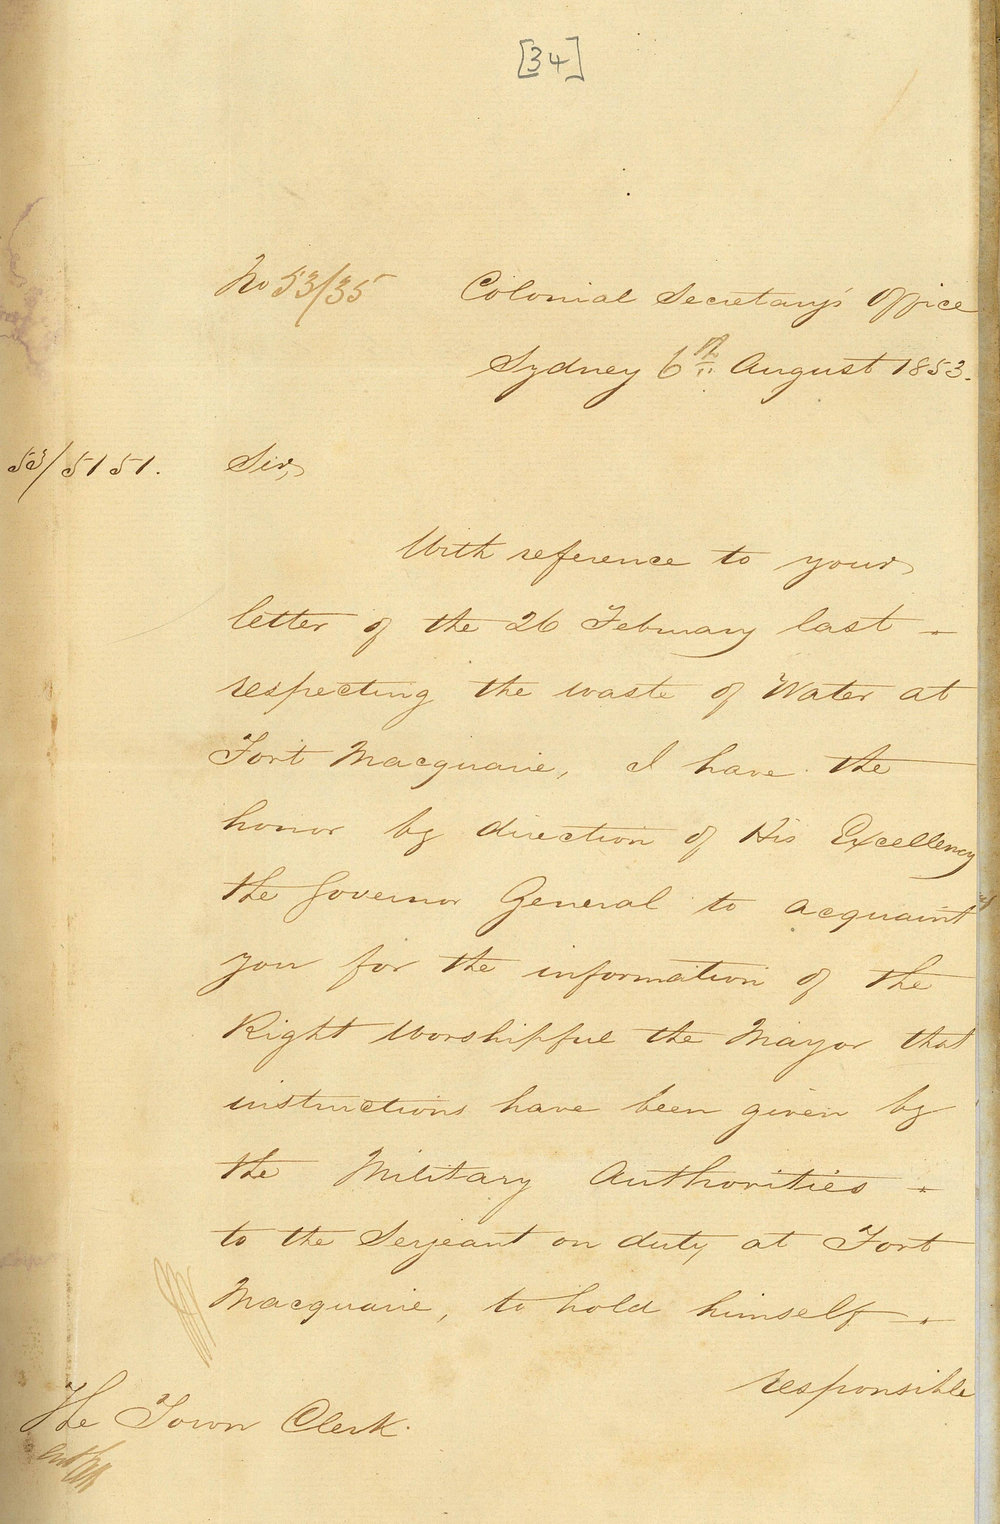 [34]
No 53/35 Colonial Secretary's Office
Sydney 6th August 1853.
53/5151. Sir,
With reference to your
letter of the 26 February last
respecting the waste of Water at
Fort Macquarie, I have the
honor by direction of His Excellency
the Governor General to acquaint
you for the information of the
Right Worshipful the Mayor that
instructions have been given by
the Military Authorities
to the Serjeant on duty at Fort
Macquarie, to hold himself
responsible
The Town Clerk.